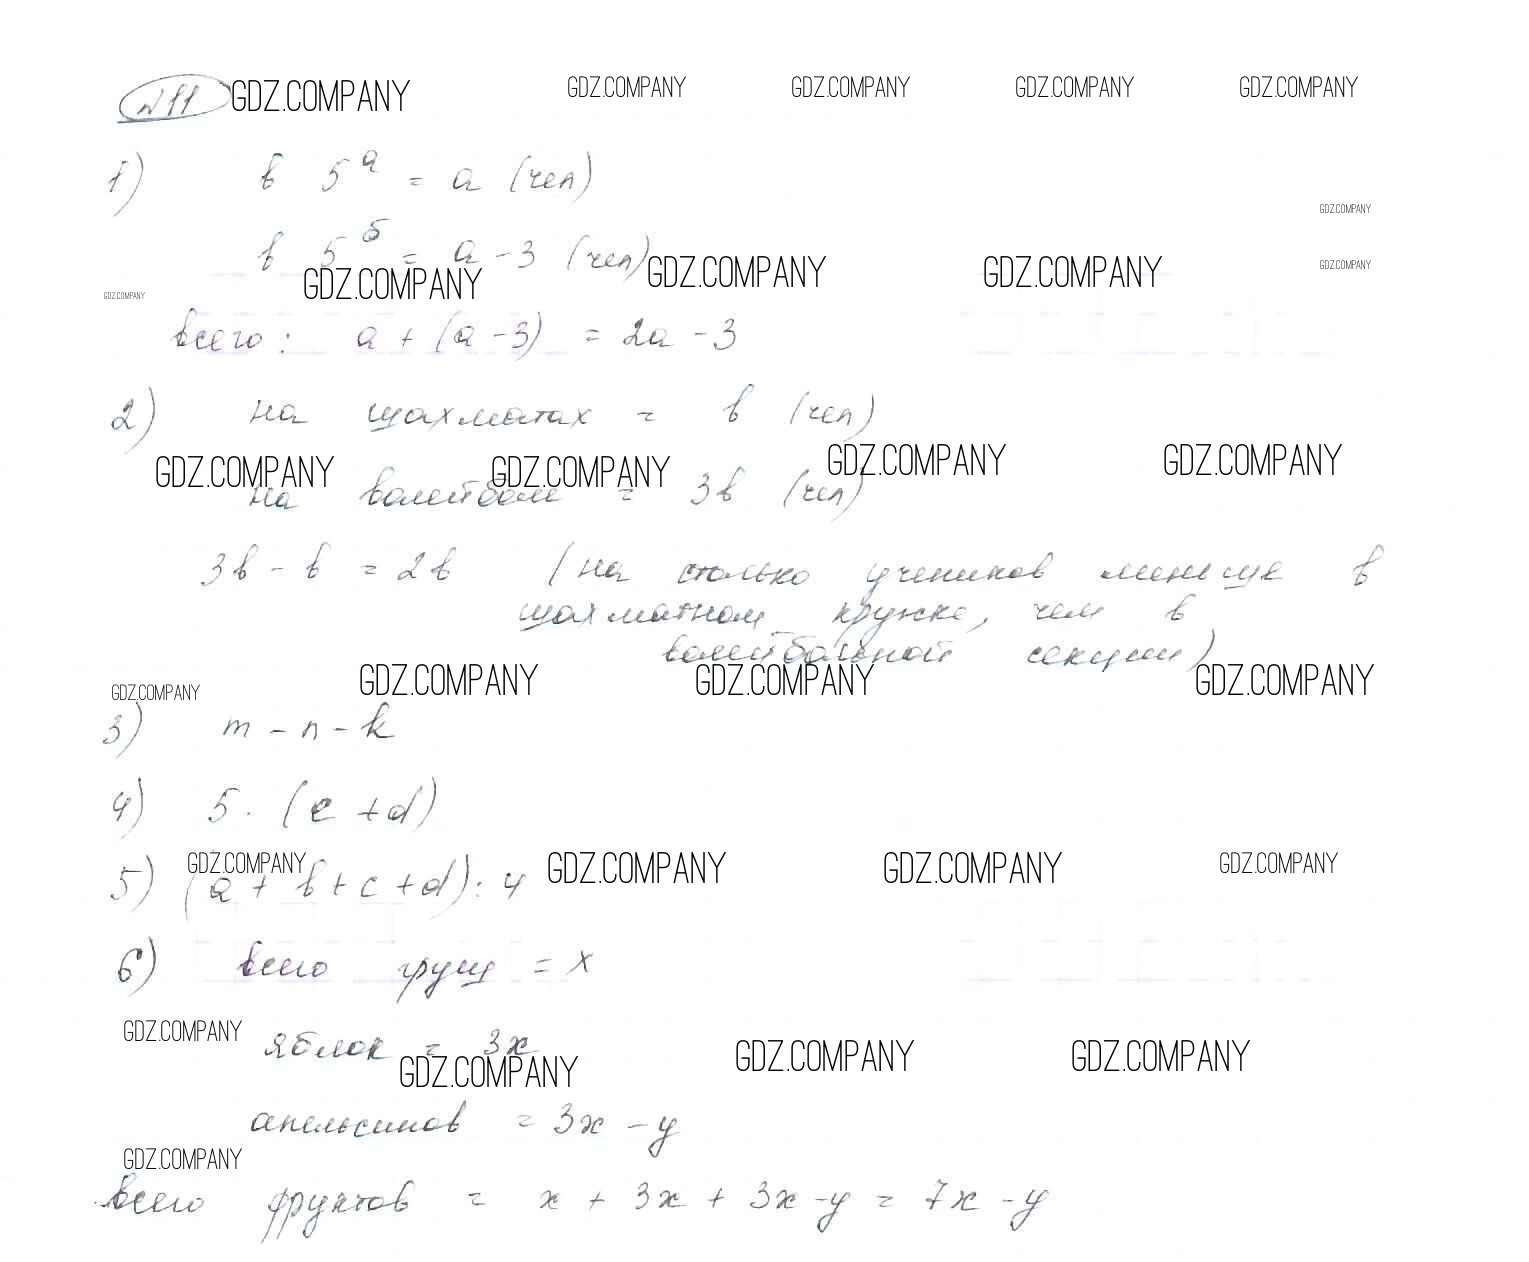 №11 GDZ.COMPANY GDZ.COMPANY GDZ.COMPANY GDZ.COMPANY GDZ.COMPANY
1) в 5ᵃ = a (чел)
GDZ.COMPANY
в 5ᵇ = a - 3 (чел)
GDZ.COMPANY GDZ.COMPANY GDZ.COMPANY GDZ.COMPANY GDZ.COMPANY
всего: a + (a - 3) = 2a - 3
2) на шахматах = в (чел)
GDZ.COMPANY GDZ.COMPANY GDZ.COMPANY GDZ.COMPANY
на волейболе = 3в (чел)
3в - в = 2в (на столько учеников меньше в
шахматном кружке, чем в
волейбольной секции)
GDZ.COMPANY GDZ.COMPANY GDZ.COMPANY GDZ.COMPANY
3) m - n - k
4) 5 · (c + d)
GDZ.COMPANY GDZ.COMPANY GDZ.COMPANY GDZ.COMPANY
5) (a + b + c + d) : 4
6) всего груш = x
GDZ.COMPANY
яблок = 3x
GDZ.COMPANY GDZ.COMPANY GDZ.COMPANY
апельсинов = 3x - y
GDZ.COMPANY
всего фруктов = x + 3x + 3x - y = 7x - y